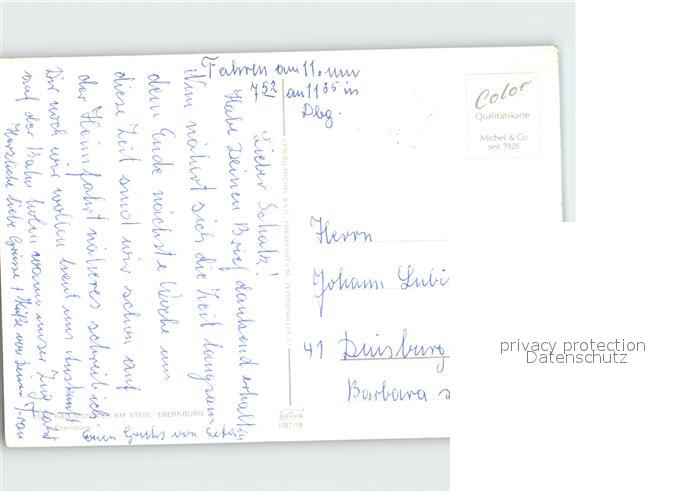 Fahren am 11. um
7 52 an 11 35 in
Dbg.
Lieber Schatz!
Habe Deinen Brief dankend erhalten
nähert sich die Zeit langsam
dem Ende nächste Woche um
diese Zeit sind wir schon auf
der Heimfahrt näheres schreib ich
Dir noch wir wollen heut uns Auskunft
auf der Bahn holen wann unser Zug fährt
Herzliche liebe Grüsse + Küsse von Deiner Frau
Color
Qualitätskarte
Michel & Co
seit 1928
VERLAG MICHEL & CO., FRANKFURT / M. ZEPPELINALLEE 27
Herrn
Johann
41 Duisburg
Barbara
AM STEIN - EBERNBURG
Ebernburg
1187/18
privacy protection
Datenschutz